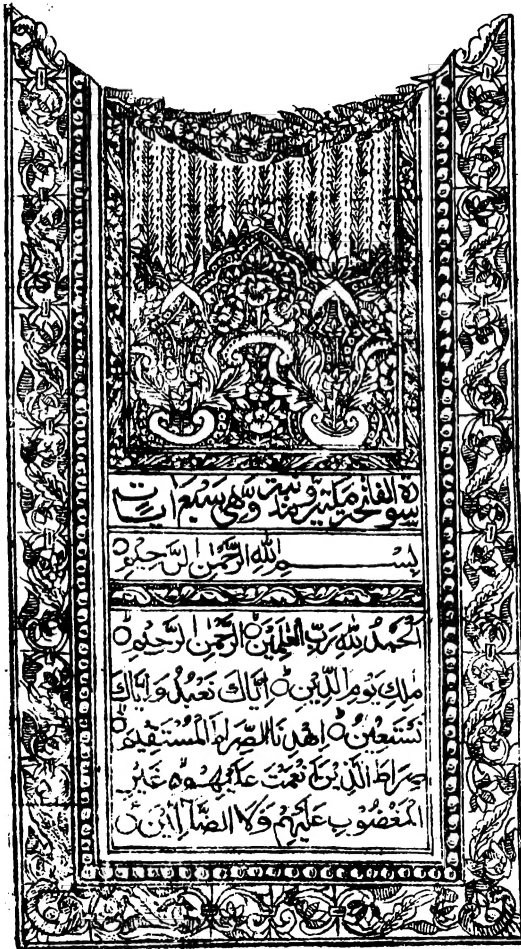 سورة الفاتحة مكية ومدنية وهي سبع ايات
بِسْمِ اللهِ الرَّحْمٰنِ الرَّحِيْمِ
اَلْحَمْدُ لِلّٰهِ رَبِّ الْعٰلَمِيْنَ الرَّحْمٰنِ الرَّحِيْمِ
مٰلِكِ يَوْمِ الدِّيْنِ اِيَّاكَ نَعْبُدُ وَاِيَّاكَ
نَسْتَعِيْنُ اِهْدِنَا الصِّرَاطَ الْمُسْتَقِيْمَ
صِرَاطَ الَّذِيْنَ اَنْعَمْتَ عَلَيْهِمْ غَيْرِ
الْمَغْضُوْبِ عَلَيْهِمْ وَلَا الضَّآلِّيْنَ